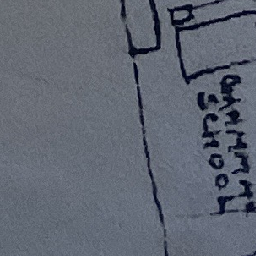 GRAMMAR
SCHOOL